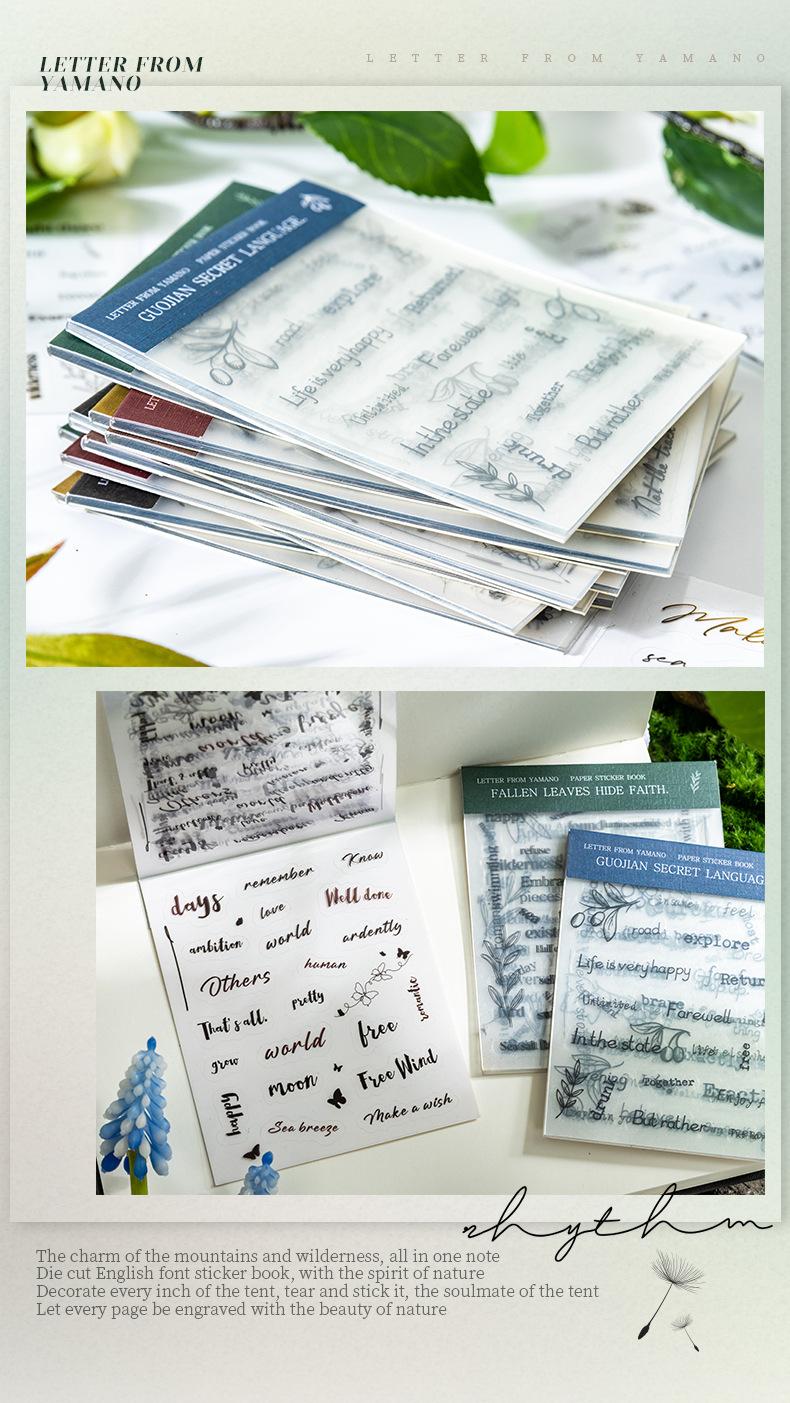 LETTER FROM
YAMANO
LETTER FROM YAMANO
LETTER FROM YAMANO PAPER STICKER BOOK
GUOJIAN SECRET LANGUAGE.
road explore Returned
Life is very happy
Unlimited brare Farewell
In the state
Together
But rather
Not the
Mak
sea
days remember Know
love Well done
ambition world ardently
Others human
That's all. pretty romantic
grow world free
happy moon Free Wind
Sea breeze Make a wish
LETTER FROM YAMANO PAPER STICKER BOOK
FALLEN LEAVES HIDE FAITH.
happy
refuse
wilderness
Embra
pieces
exist
LETTER FROM YAMANO PAPER STICKER BOOK
GUOJIAN SECRET LANGUAG
feel
road explore
Life is very happy Retur
Unlimited brare Farewell
In the state free
Together Exact
drunk But rather
rhythm
The charm of the mountains and wilderness, all in one note
Die cut English font sticker book, with the spirit of nature
Decorate every inch of the tent, tear and stick it, the soulmate of the tent
Let every page be engraved with the beauty of nature